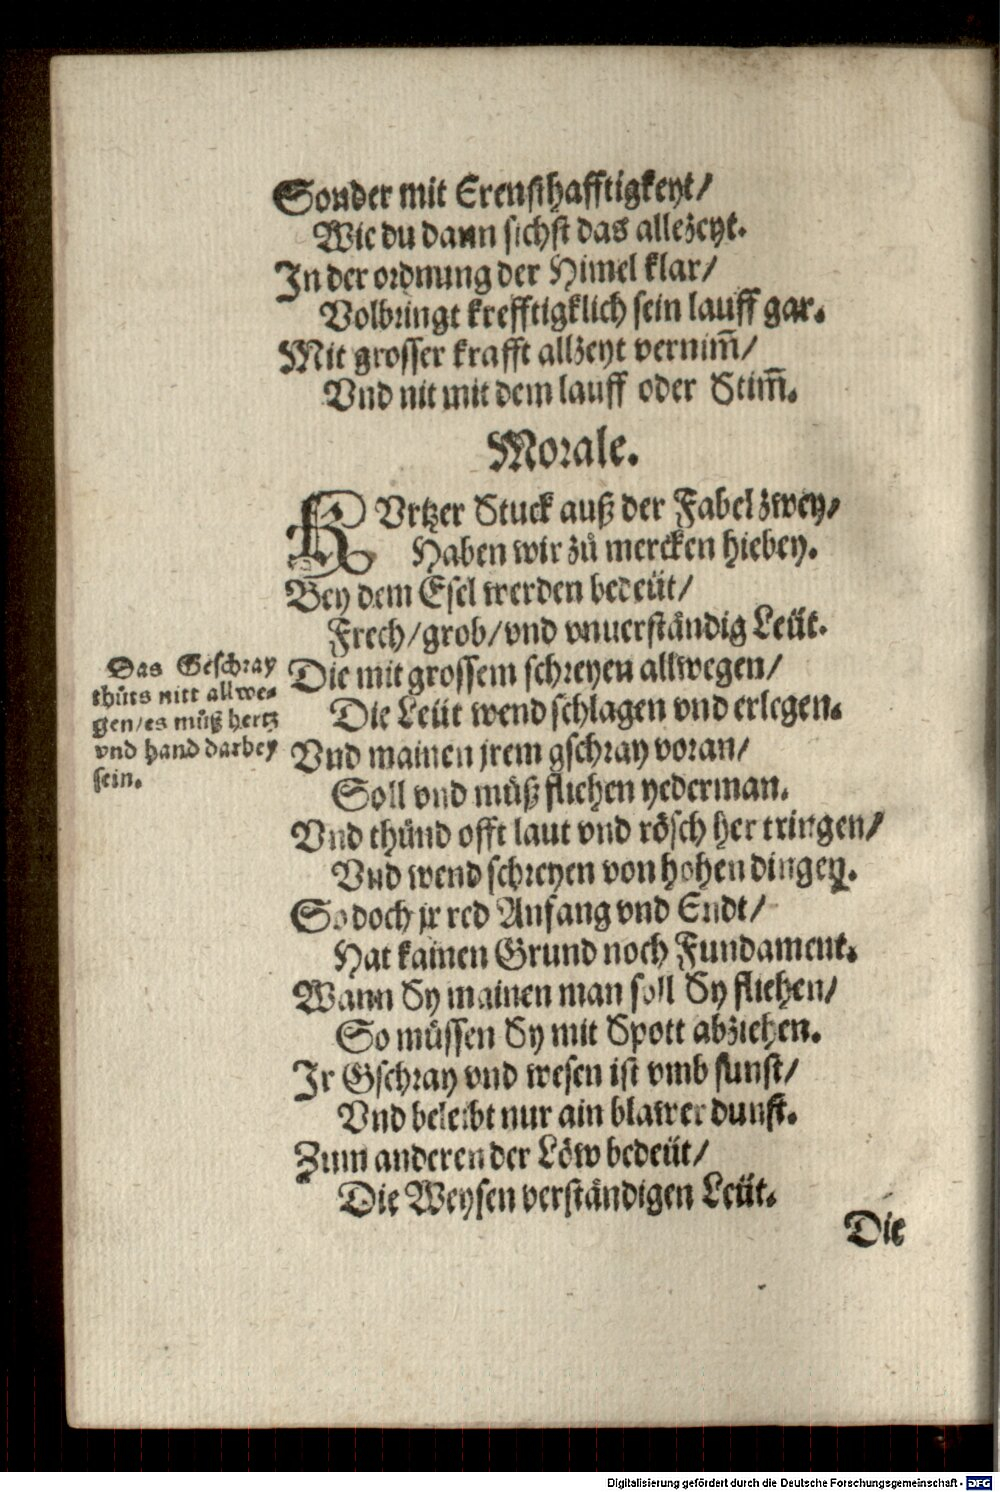 Sonder mit Erensthafftigkeyt/
Wie du dann sichst das allezeyt.
In der ordnung der Himel klar/
Volbringt krefftigklich sein lauff gar.
Mit grosser krafft allzeyt vernim̃/
Vnd nit mit dem lauff oder Stim̃.
Morale.
KVrtzer Stuck auß der Fabel zwey/
Haben wir zů mercken hiebey.
Bey dem Esel werden bedeüt/
Frech/grob/vnd vnuerständig Leüt.
Die mit grossem schreyen allwegen/
Die Leüt wend schlagen vnd erlegen.
Vnd mainen jrem gschray voran/
Soll vnd můß fliehen yederman.
Vnd thůnd offt laut vnd rösch her tringen/
Vnd wend schreyen von hohen dingen.
So doch jr red Anfang vnd Endt/
Hat kainen Grund noch Fundament.
Wann Sy mainen man soll Sy fliehen/
So müssen Sy mit Spott abziehen.
Ir Gschray vnd wesen ist vmb sunst/
Vnd beleibt nur ain blawer dunst.
Zum anderen der Löw bedeüt/
Die Weysen verständigen Leüt.
Die
Das Geschray
thůts nitt allwe-
gen/es můß hertz
vnd hand darbey
sein.
Digitalisierung gefördert durch die Deutsche Forschungsgemeinschaft - DFG